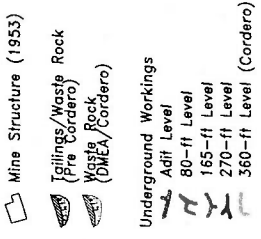 Mine Structure (1953)
Tailings/Waste Rock
(Pre Cordero)
Waste Rock
(DMEA/Cordero)
Underground Workings
Adit Level
80-ft Level
165-ft Level
270-ft Level
360-ft Level (Cordero)